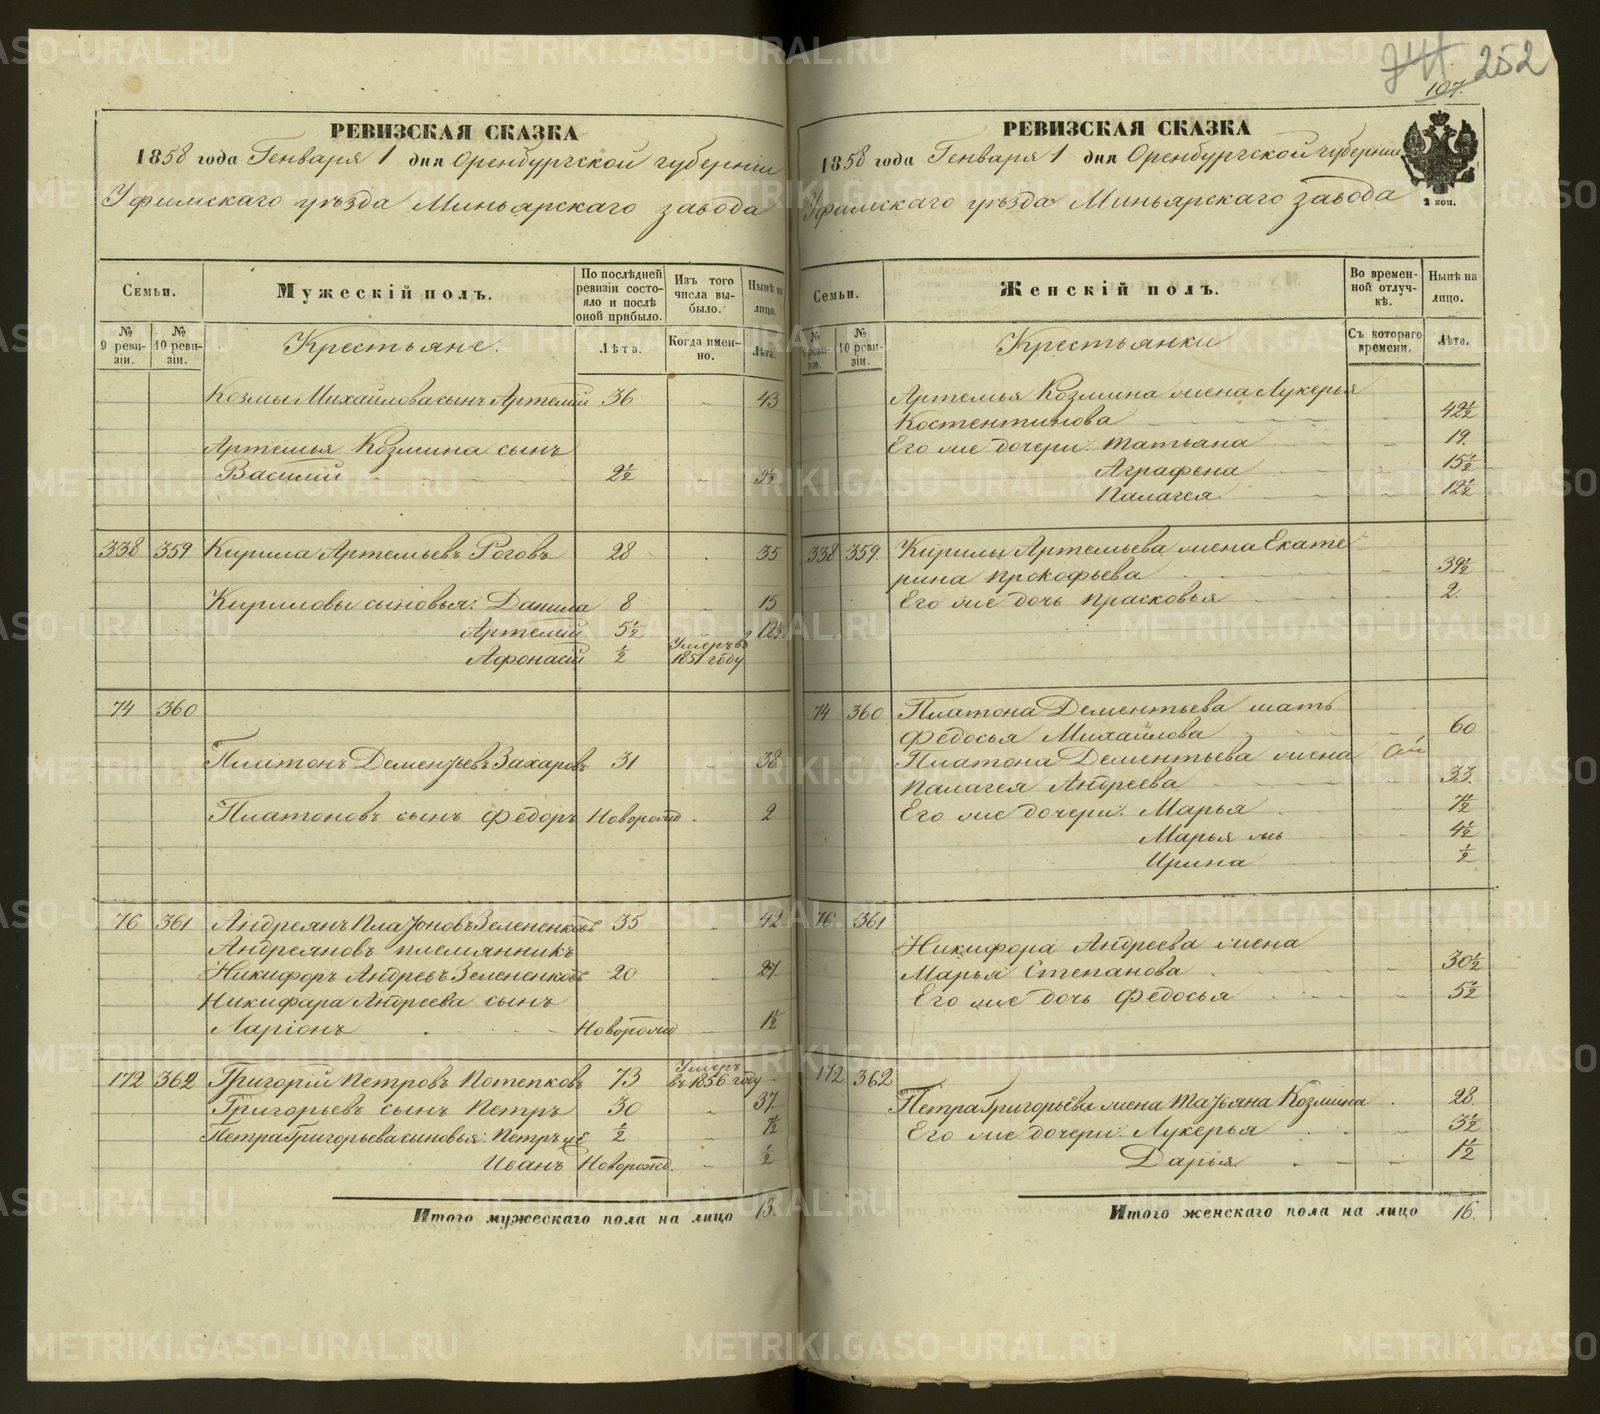 252
107.
РЕВИЗСКАЯ СКАЗКА
1858 года Генваря 1 дня Оренбургской губернии
Уфимскаго уѣзда Миньярскаго завода
Семьи.
Мужескій полъ.
По послѣдней ревизіи состояло и послѣ оной прибыло.
Изъ того числа выбыло.
Нынѣ на лицо.
№ 9 ревизіи.
№ 10 ревизіи.
Крестьяне.
Лѣта.
Когда именно.
Лѣта.
Козмы Михайлова сынъ Артемий 36 - 43
Артемья Козмина сынъ
Василий 2½ - 9½
338 359 Кирила Артемьевъ Роговъ 28 . 35
Кириловы сыновья: Данила 8 - 15
Артемий 5½ - 12½
Афонасій ½ Умеръ въ 1851 году
74 360
Платонъ Дементьевъ Захаровъ 31 - 38
Платоновъ сынъ Федоръ Новорожд - 2
76 361 Андреянъ Платоновъ Зелененковъ 35 - 42
Андреяновъ племянникъ
Никифоръ Андреевъ Зелененковъ 20 - 27
Никифара Андреева сынъ
Ларіонъ Новорожд - 1½
172 362 Григорій Петровъ Потепковъ 73 Умеръ въ 1856 году
Григорьевъ сынъ Петръ 30 - 37
Петра Григорьева сыновья: Петръ же ½ - 7½
Иванъ Новорожд. - ½
Итого мужескаго пола на лицо 13.
РЕВИЗСКАЯ СКАЗКА
1858 года Генваря 1 дня Оренбургской губернии
Уфимскаго уѣзда Миньярскаго завода
2 коп.
Семьи.
Женскій полъ.
Во временной отлучкѣ.
Нынѣ на лицо.
№ 9 ревизіи.
№ 10 ревизіи.
Крестьянки
Съ котораго времени.
Лѣта.
Артемья Козмина жена Лукерья
Костентинова - 42½
Его же дочери: Татьана - 19.
Аграфена - 15½
Палагея - 12½
338 359. Кирилы Артемьева жена Екате
рина Прокофьева - 39½
Его же дочь Прасковья - 2.
74 360 Платона Дементьева мать
Федосья Михайлова - 60
Платона Дементьева жена
Палагея Андреева - 33.
Его же дочери: Марья - 7½
Марья жь - 4½
Ирина - ½
76 361
Никифора Андреева жена
Марья Степанова - 30½
Его же дочь Федосья - 5½
172 362
Петра Григорьева жена Татьяна Козмина . 28
Его же дочери: Лукерья - 3½
Дарья - 1½
Итого женскаго пола на лицо 16.
METRIKI.GASO-URAL.RU